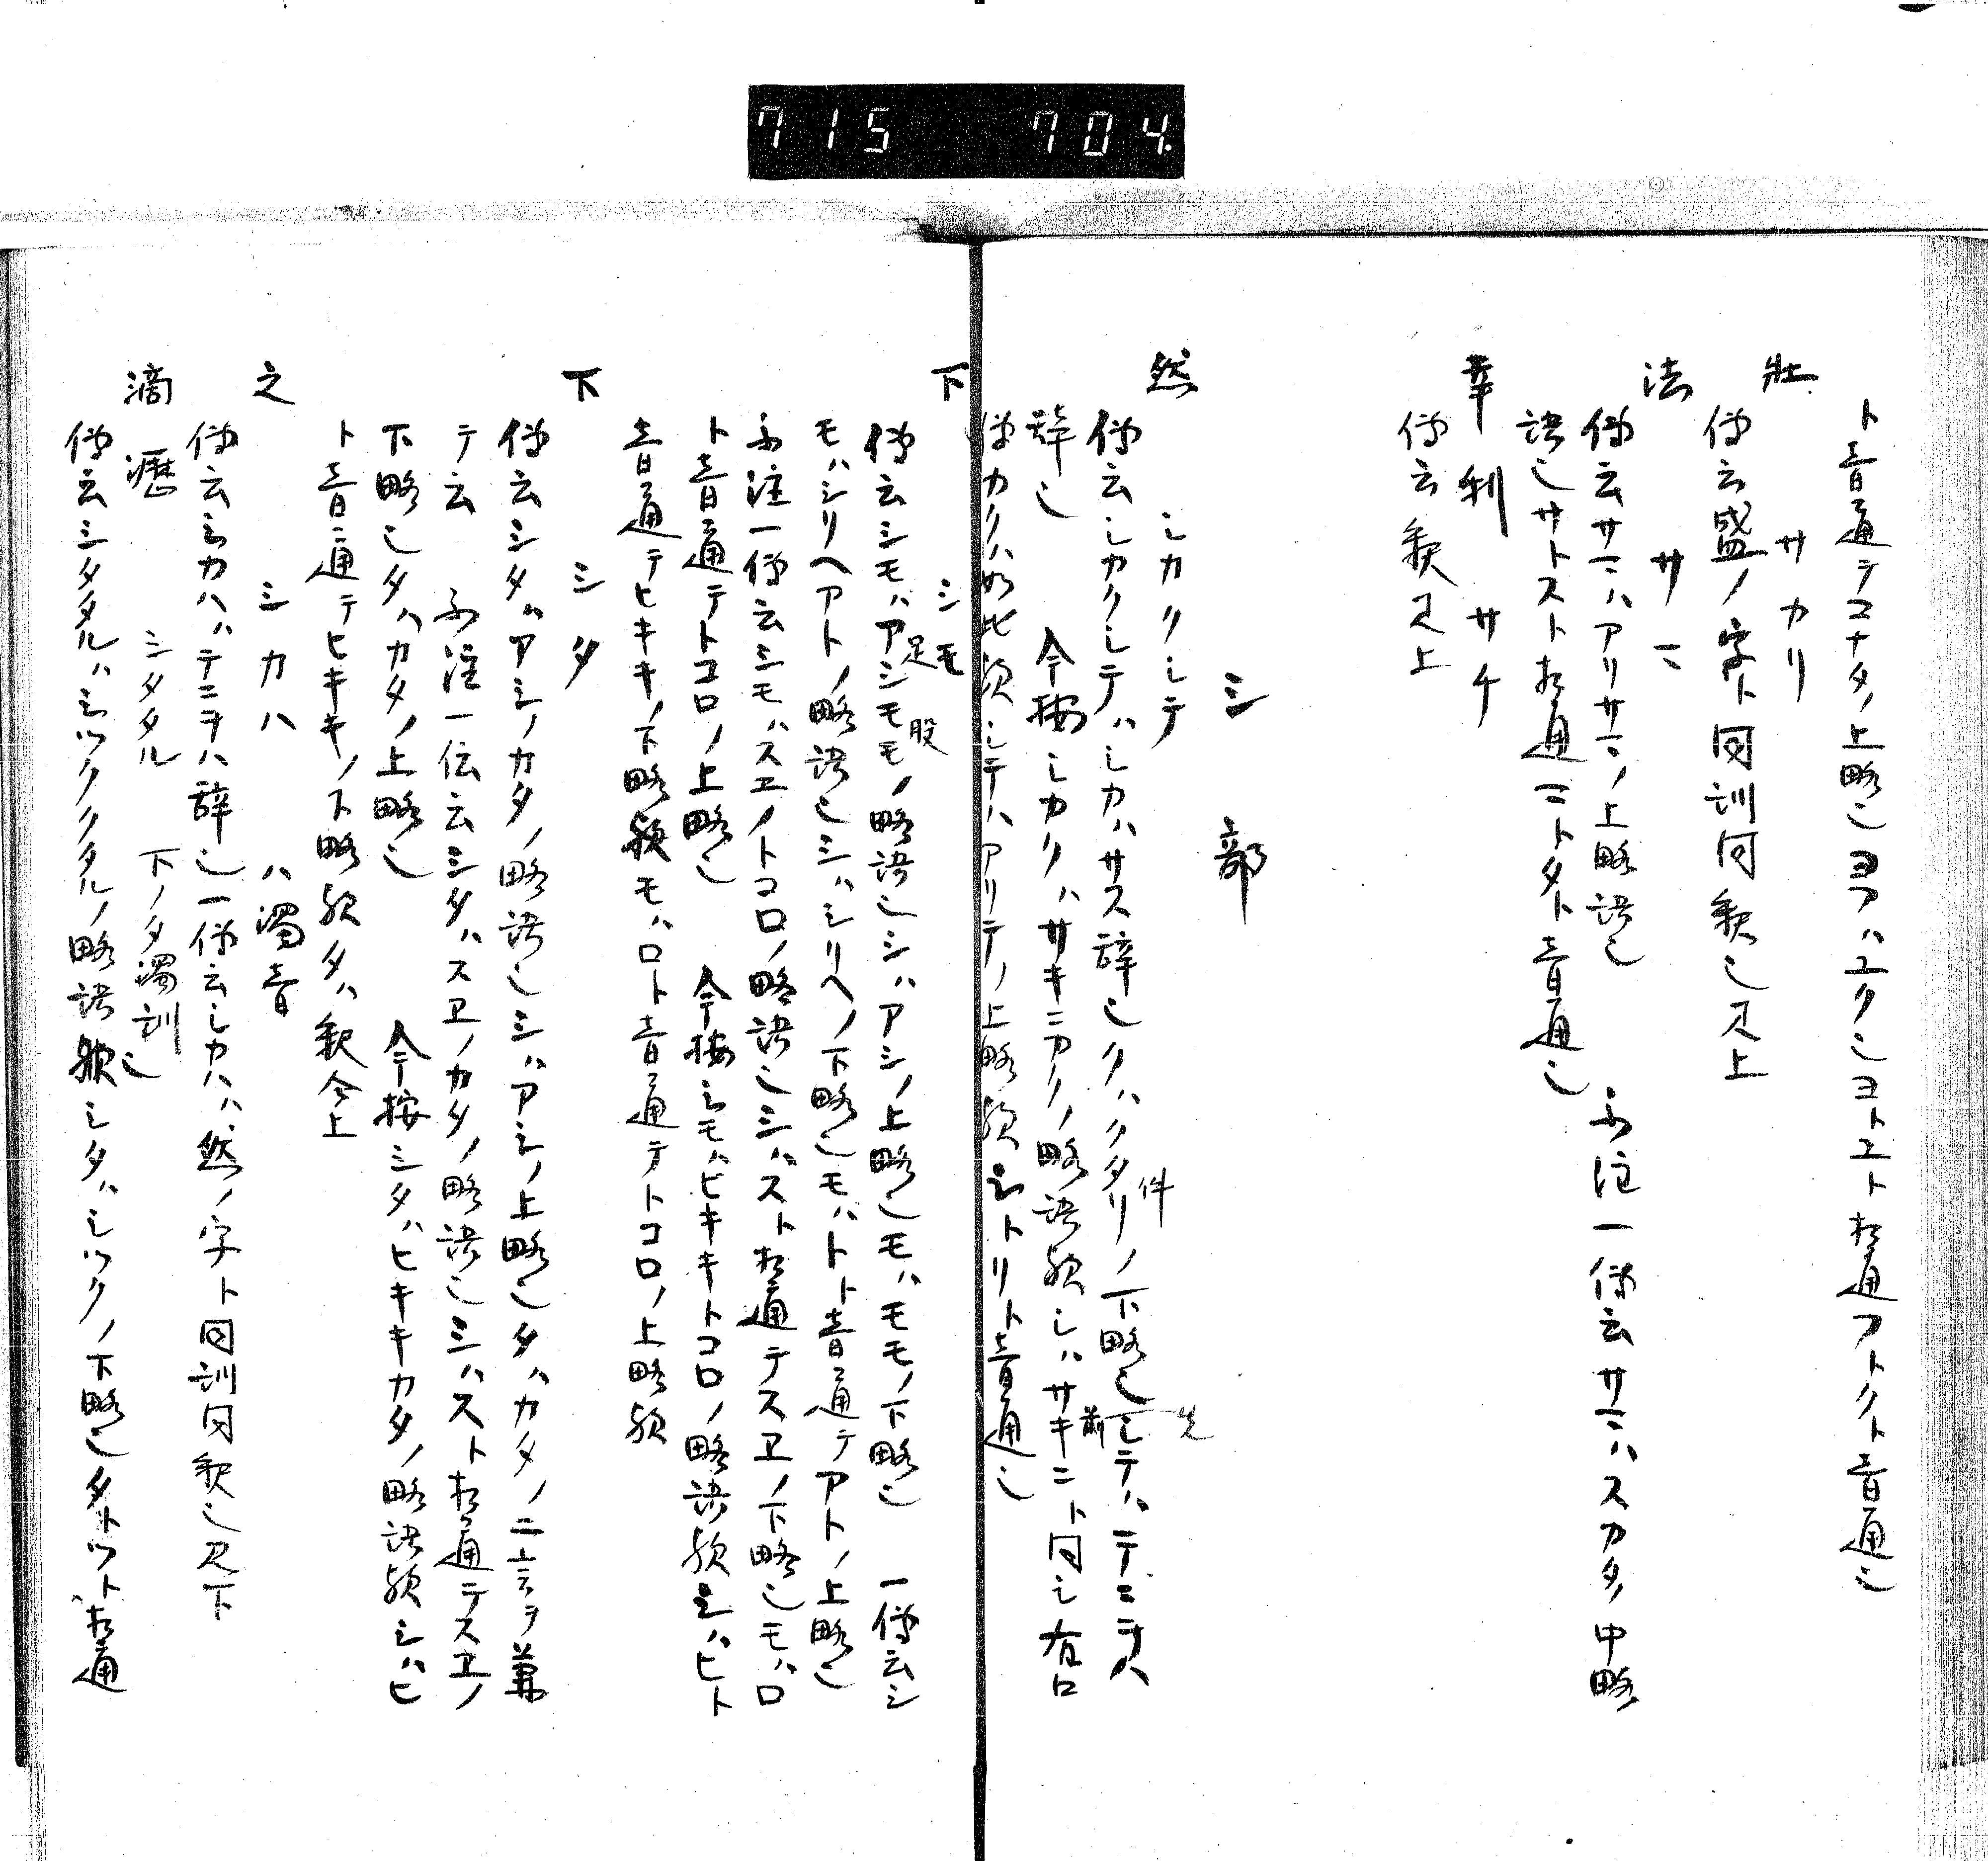 715 704.
ト音通テコナタノ上略也ヨフハユク也ヨトユト相通フトクト音通也
壮 サカリ
傳云盛ノ字ト同訓同釈也見上
法 サマ
傳云サマハアリサマノ上略語也 不注一傳云サマハスカタノ中略
語也サトスト相通マトタト音通也
幸利 サチ
傳云釈見上
シ部
然 シカクシテ
傳云シカクシテハシカハサス辞也クハクタリノ下略也シテハテニヲハ
件
先
辞也 今按シカクハサキニカクノ略語歟シハサキニト同シ
前
カクハ如此歟シテハアリテノ上略歟シトリト音通也
下 シモ
足 股
傳云シモハアシモモノ略語也シハアシノ上略也モハモモノ下略也 一傳云シ
モハシリヘアトノ略語也シハシリヘノ下略也モハトト音通テアトノ上略也
不注一傳云シモハスヱノトコロノ略語也シハスト相通テスヱノ下略也モハロ
ト音通テトコロノ上略也 今按シモハヒキキトコロノ略語歟シハヒト
音通テヒキキノ下略歟モハロト音通テトコロノ上略歟
下 シタ
傳云シタハアシノカタノ略語也シハアシノ上略也タハカタノ二言ヲ兼
テ云 不注一伝云シタハスヱノカタノ略語也シハスト相通テスヱノ
下略也タハカタノ上略也 今按シタハヒキキカタノ略語歟シハヒ
ト音通テヒキキノ下略歟タハ釈今上
之 シカハ ハ濁音
傳云シカハハテニヲハ辞也一傳云シカハハ然ノ字ト同訓同釈也見下
滴瀝 シタタル 下ノタ濁訓也
傳云シタタルハシツククタルノ略語歟シタハシツクノ下略也タトツト相通